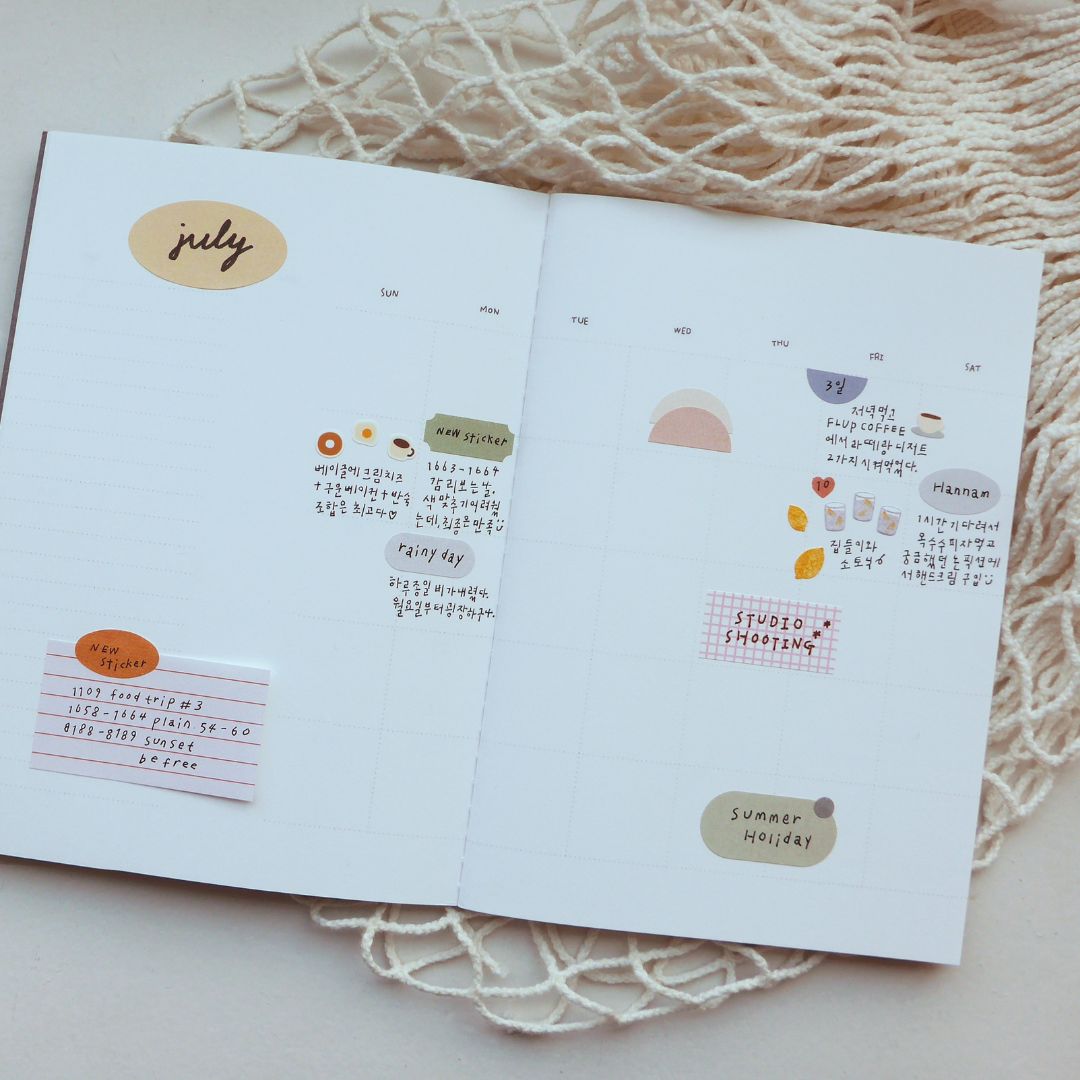 july
SUN
MON
TUE
WED
THU
FRI
SAT
3일
저녁먹고
FLUP COFFEE
에서 라떼랑 디저트
2가지 시켜먹었다.
NEW Sticker
1663-1664
감리보는날.
색 맞추기어려웠
는데, 최종은 만족
베이글에 크림치즈
+구운베이컨+반숙
조합은 최고다♡
rainy day
하루종일 비가내렸다.
월요일부터 굉장하구나.
10
집들이와
소토닉
Hannam
1시간 기다려서
옥수수피자먹고
궁금했던 논픽션에
서 핸드크림 구입
STUDIO *
SHOOTING *
NEW
Sticker
1109 food trip #3
1658-1664 plain. 54-60
8188-8189 sunset
be free
Summer
Holiday